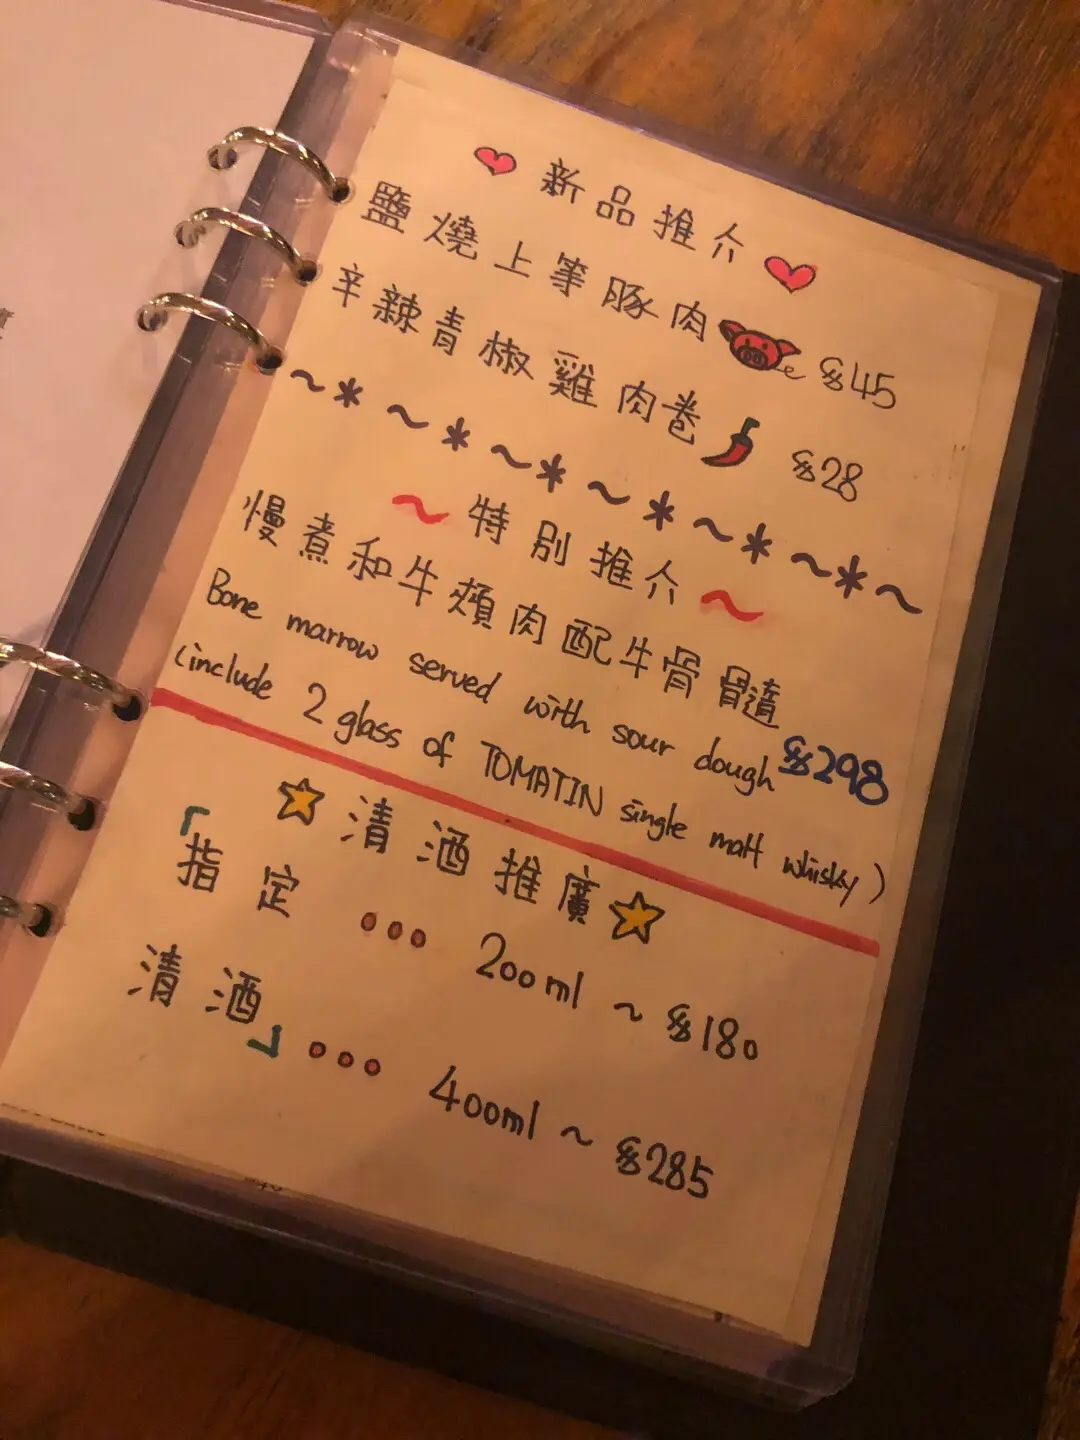 新品推介
鹽燒上等豚肉 $45
辛辣青椒雞肉卷 $28
~*~*~*~*~*~*~
~特別推介~
慢煮和牛頰肉配牛骨髓
Bone marrow served with sour dough $298
(include 2 glass of TOMATIN single malt whisky)
清酒推廣
「指定 ... 200ml ~ $180
清酒」... 400ml ~ $285